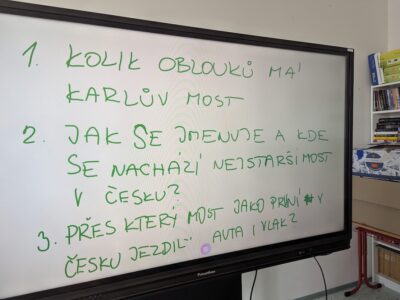 1. KOLIK OBLOUKŮ MÁ
KARLŮV MOST
2. JAK SE JMENUJE A KDE
SE NACHÁZÍ NEJSTARŠÍ MOST
V ČESKU?
3. PŘES KTERÝ MOST JAKO PRVNÍ V
ČESKU JEZDILI AUTA I VLAK?